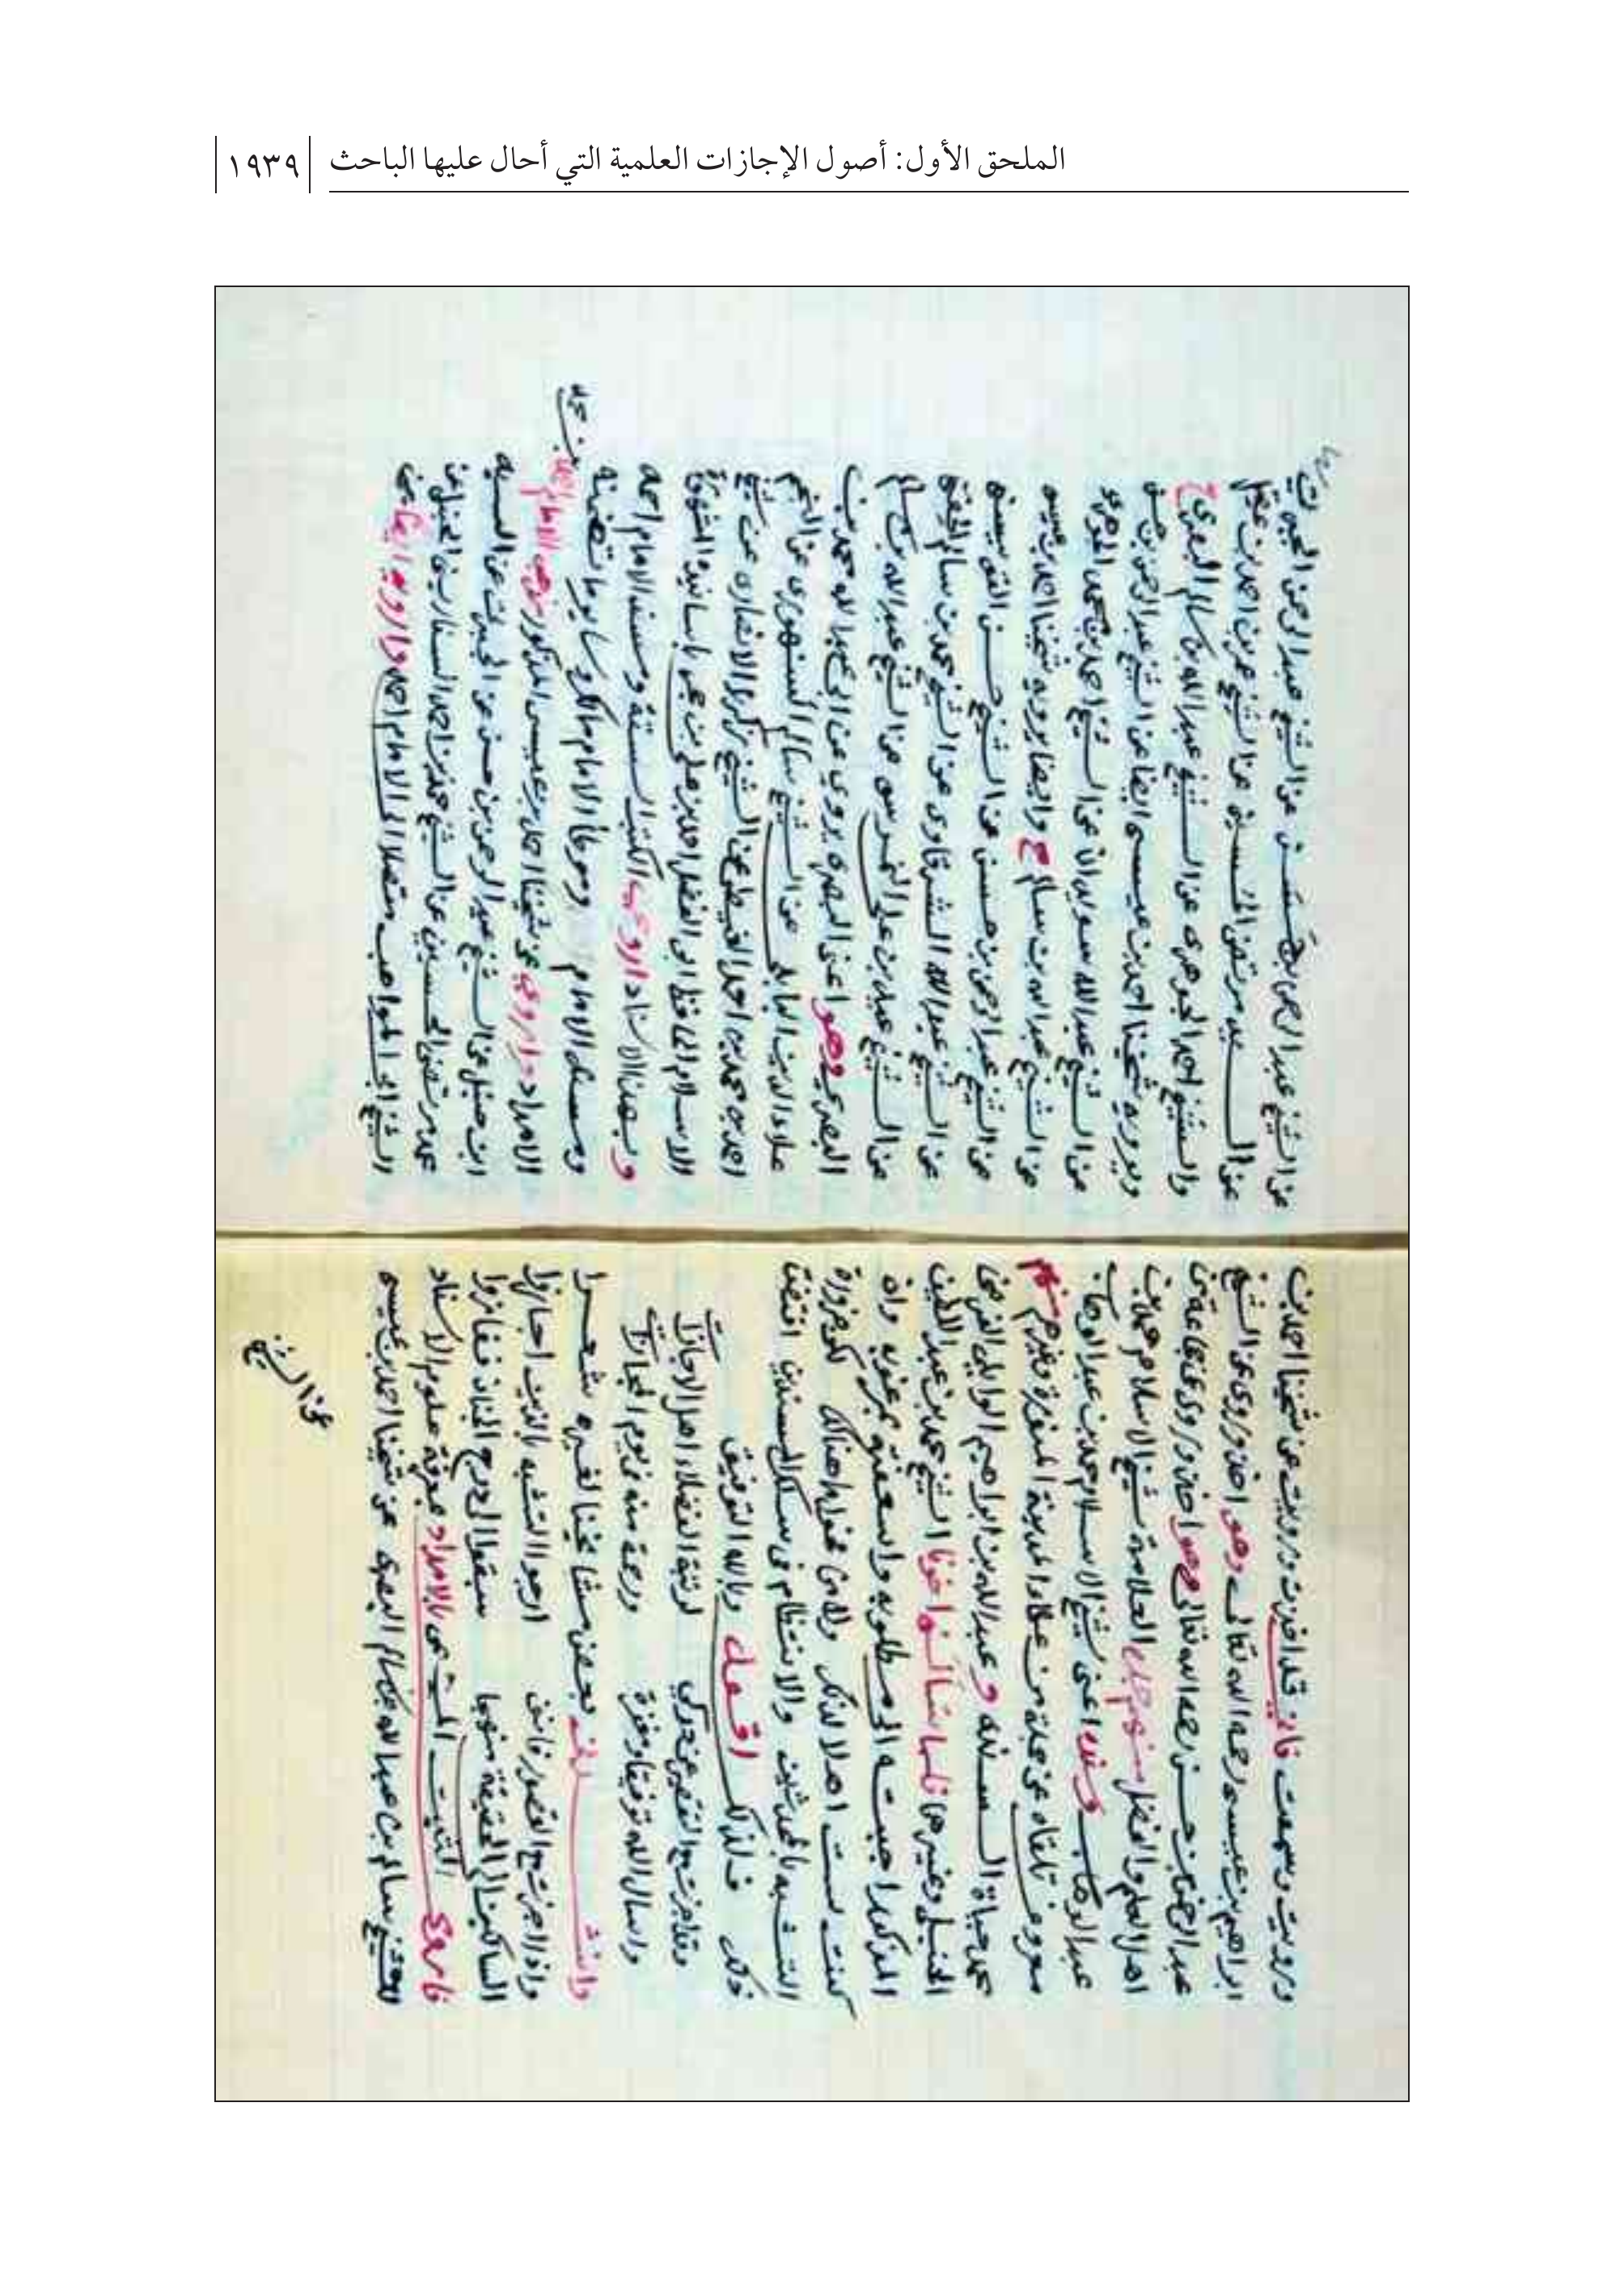 الملحق الأول: أصول الإجازات العلمية التي أحال عليها الباحث ١٩٣٩
ورويت وسمعت فاني قد اخذت ورويت عن شيخنا احمد بن
ابراهيم بن عيسى رحمه الله تعالى وهو اخذ وروى عن الشيخ
عبد الرحمن بن حسن رحمه الله تعالى وهو اخذ وروى عن جماعة من
اهل العلم والفضل منهم جده العلامة شيخ الاسلام محمد بن
عبد الوهاب اعني شيخ الاسلام محمد بن عبد الوهاب
معروف تلقاه عن جملة من علماء المدينة المنورة وغيرهم منهم
محمد حياة السندي وعبد الله بن ابراهيم الوايلي الفرضي
الحنبلي وغيرها فلما اخونا الشيخ محمد بن عبد اللطيف
المذكور اجبته الى مطلوبه واسعفته بمرغوبه وان
كنت لست اهلا لذلك هنالك ضرورة
التشبه بالمحدثين والانتظام في سلك المسندين اقتضت
ذلك فلذلك اقول وبالله التوفيق
وقد اجزت مع التقصير عن دركي لرتبة الفضلاء اهل الاجازات
واسال الله توفيقا ومغفرة ورحمة منه في يوم المجازات
وانشد بعض مشايخنا لغيره شعرا
واذا اجزت مع القصور فانني ارجو التشبه بالذين اجازوا
السالكين الى الحقيقة منهجا سبقوا الى درج الجنان ففازوا
فاروي الثبت المسمى بالامداد بمعرفة علو الاسناد
للشيخ سالم بن عبد الله بن سالم البصري عن شيخنا احمد بن عيسى
عن الشيخ
عن الشيخ عبد الرحمن بن حسن عن الشيخ عبد الرحمن الجبرتي
عن السيد مرتضى الحسيني عن الشيخ عمر بن احمد بن عقيل
والشيخ احمد الجوهري عن الشيخ عبد الله بن سالم البصري ح
ويرويه شيخنا احمد بن عيسى ايضا عن الشيخ عبد الرحمن بن حسن
عن الشيخ عبد الله سويدان عن الشيخ احمد بن محمد الجوهري
عن الشيخ عبد الله بن سالم ح وايضا يرويه شيخنا احمد بن عيسى
عن الشيخ عبد الرحمن بن حسن عن الشيخ حسن القويسني
عن الشيخ عبد الله الشرقاوي عن الشيخ محمد بن سالم الحفني
عن الشيخ عيد بن علي النمرسي عن الشيخ عبد الله بن سالم
البصري وهو اعني البصري يروي عن ابي عبد الله محمد بن
علاء الدين البابلي عن الشيخ سالم السنهوري عن النجم
احمد بن محمد بن احمد الغيطي عن الشيخ زكريا الانصاري عن شيخ
الاسلام الحافظ ابي الفضل احمد بن علي بن حجر باسانيده المشهورة
وبهذا الاسناد اروي الكتب الستة ومسند الامام احمد
ومسند الامام وموطأ الامام مالك وساير ما تضمنه
الامداد واروي عن شيخنا احمد بن عيسى المذكور مذهب الامام احمد بن محمد
ابن حنبل عن الشيخ عبد الرحمن بن حسن عن الجبرتي عن السيد
محمد مرتضى الحسيني عن الشيخ محمد بن احمد السفاريني الحنبلي عن
الشيخ ابي المواهب متصلا الى الامام احمد واروي ايضا عن